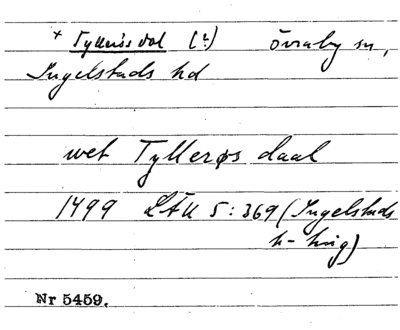 + Tyllerøs dal (?) Övraby sn,
Ingelstads hd
wet Tyllerøs daal
1499 LÄU 5:369 (Ingelstads
h-ting)
Nr 5459.